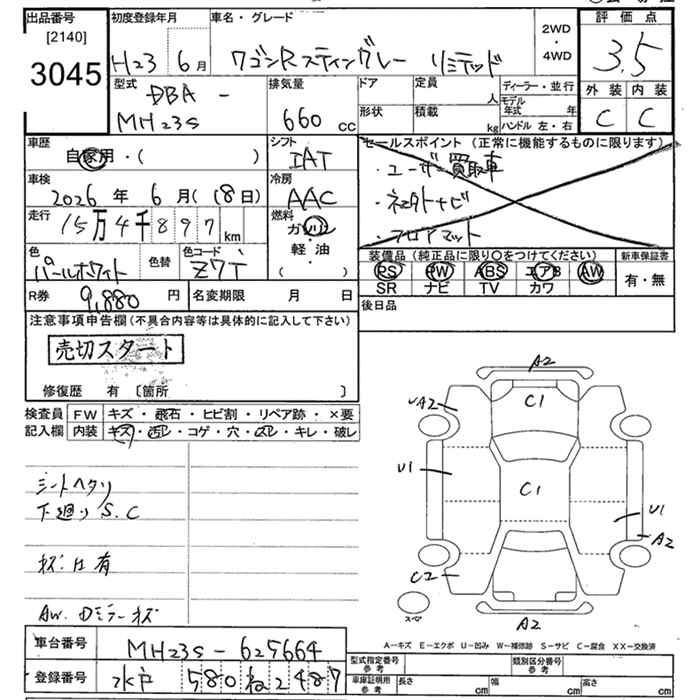 出品番号
[2140]
3045
初度登録年月
H23 6月
車名・グレード
ワゴンRスティングレー リミテッド
2WD
・
4WD
評価点
3.5
外装 内装
C C
型式
DBA -
MH23S
排気量
660 cc
ドア
形状
定員 人
積載 kg
ディーラー・並行
モデル年式 年
ハンドル 左・右
車歴
自家用・( )
シフト
IAT
車検
2026年 6月(18日)
冷房
AAC
走行
15万4千897km
燃料
ガソリン
軽・油
( )
色
パールホワイト
色替
色コード
Z7T
R券 9,880円
名変期限 月 日
セールスポイント (正常に機能するものに限ります)
・ユーザー買取車
・ネクストナビ
・フロアマット
装備品(純正品に限り○をつけてください)
PS PW ABS エアB AW
SR ナビ TV カワ
新車保証書
有・無
後日品
注意事項申告欄(不具合内容等は具体的に記入して下さい)
売切スタート
修復歴 有 〔箇所 〕
検査員記入欄
FW キズ・飛石・ヒビ割・リペア跡・×要
内装 キズ・汚レ・コゲ・穴・スレ・キレ・破レ
シートヘタリ
下廻り S.C
キズ凹有
AW. Dミラーキズ
A2
C1
UA2
U1
C1
U1
A2
C2
スペア
A2
A-キズ E-エクボ U-凹み W-補修跡 S-サビ C-腐食 XX-交換済
車台番号
MH23S-625664
登録番号
水戸 580 ね 2487
型式指定番号 参考
類別区分番号 参考
車庫証明用 参考
長さ cm
幅 cm
高さ cm